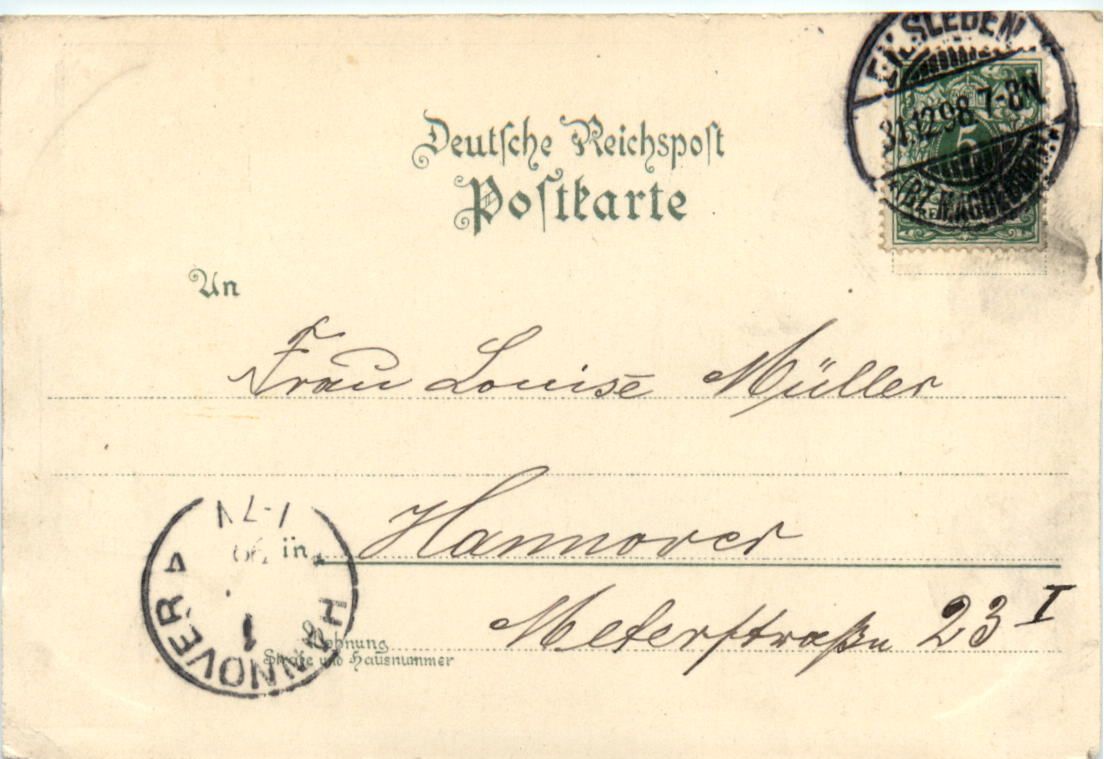 EILSLEBEN
31.12.98. 7-8N.
(BZ. MAGDEBURG)
5
Deutsche Reichspost
Postkarte
An
Frau Louise Müller
in Hannover
Meterstraße 23 I
Wohnung
Straße und Hausnummer
HANNOVER
1